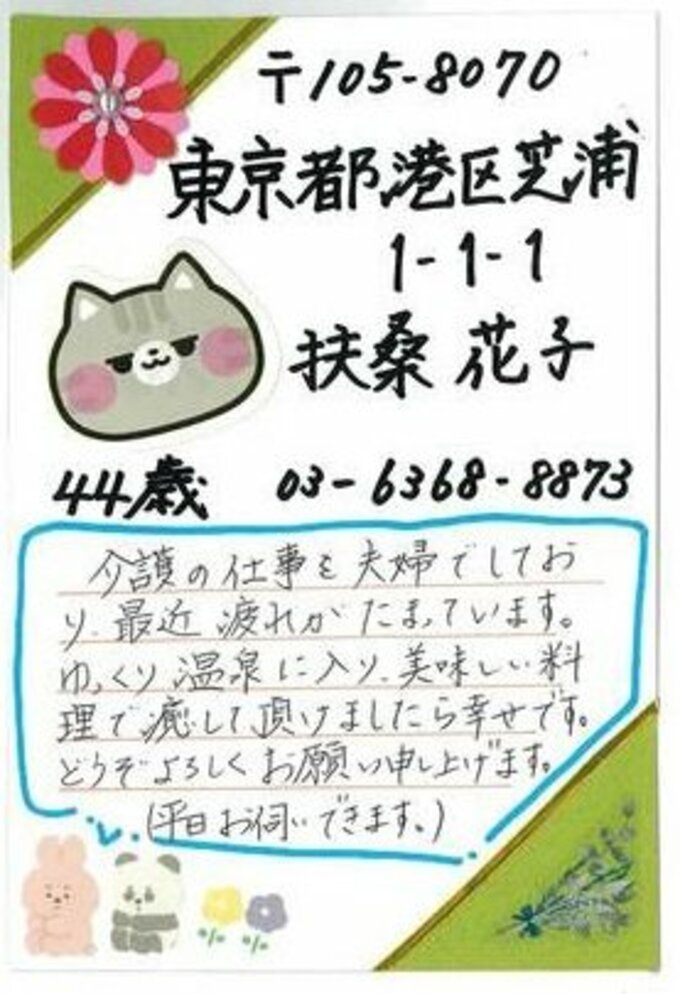 〒105-8070
東京都港区芝浦
1-1-1
扶桑 花子
44歳 03-6368-8873
介護の仕事を夫婦でしてお
り、最近疲れがたまっています。
ゆっくり温泉に入り、美味しい料
理で癒して頂けましたら幸せです。
どうぞよろしくお願い申し上げます。
(平日お伺いできます。)